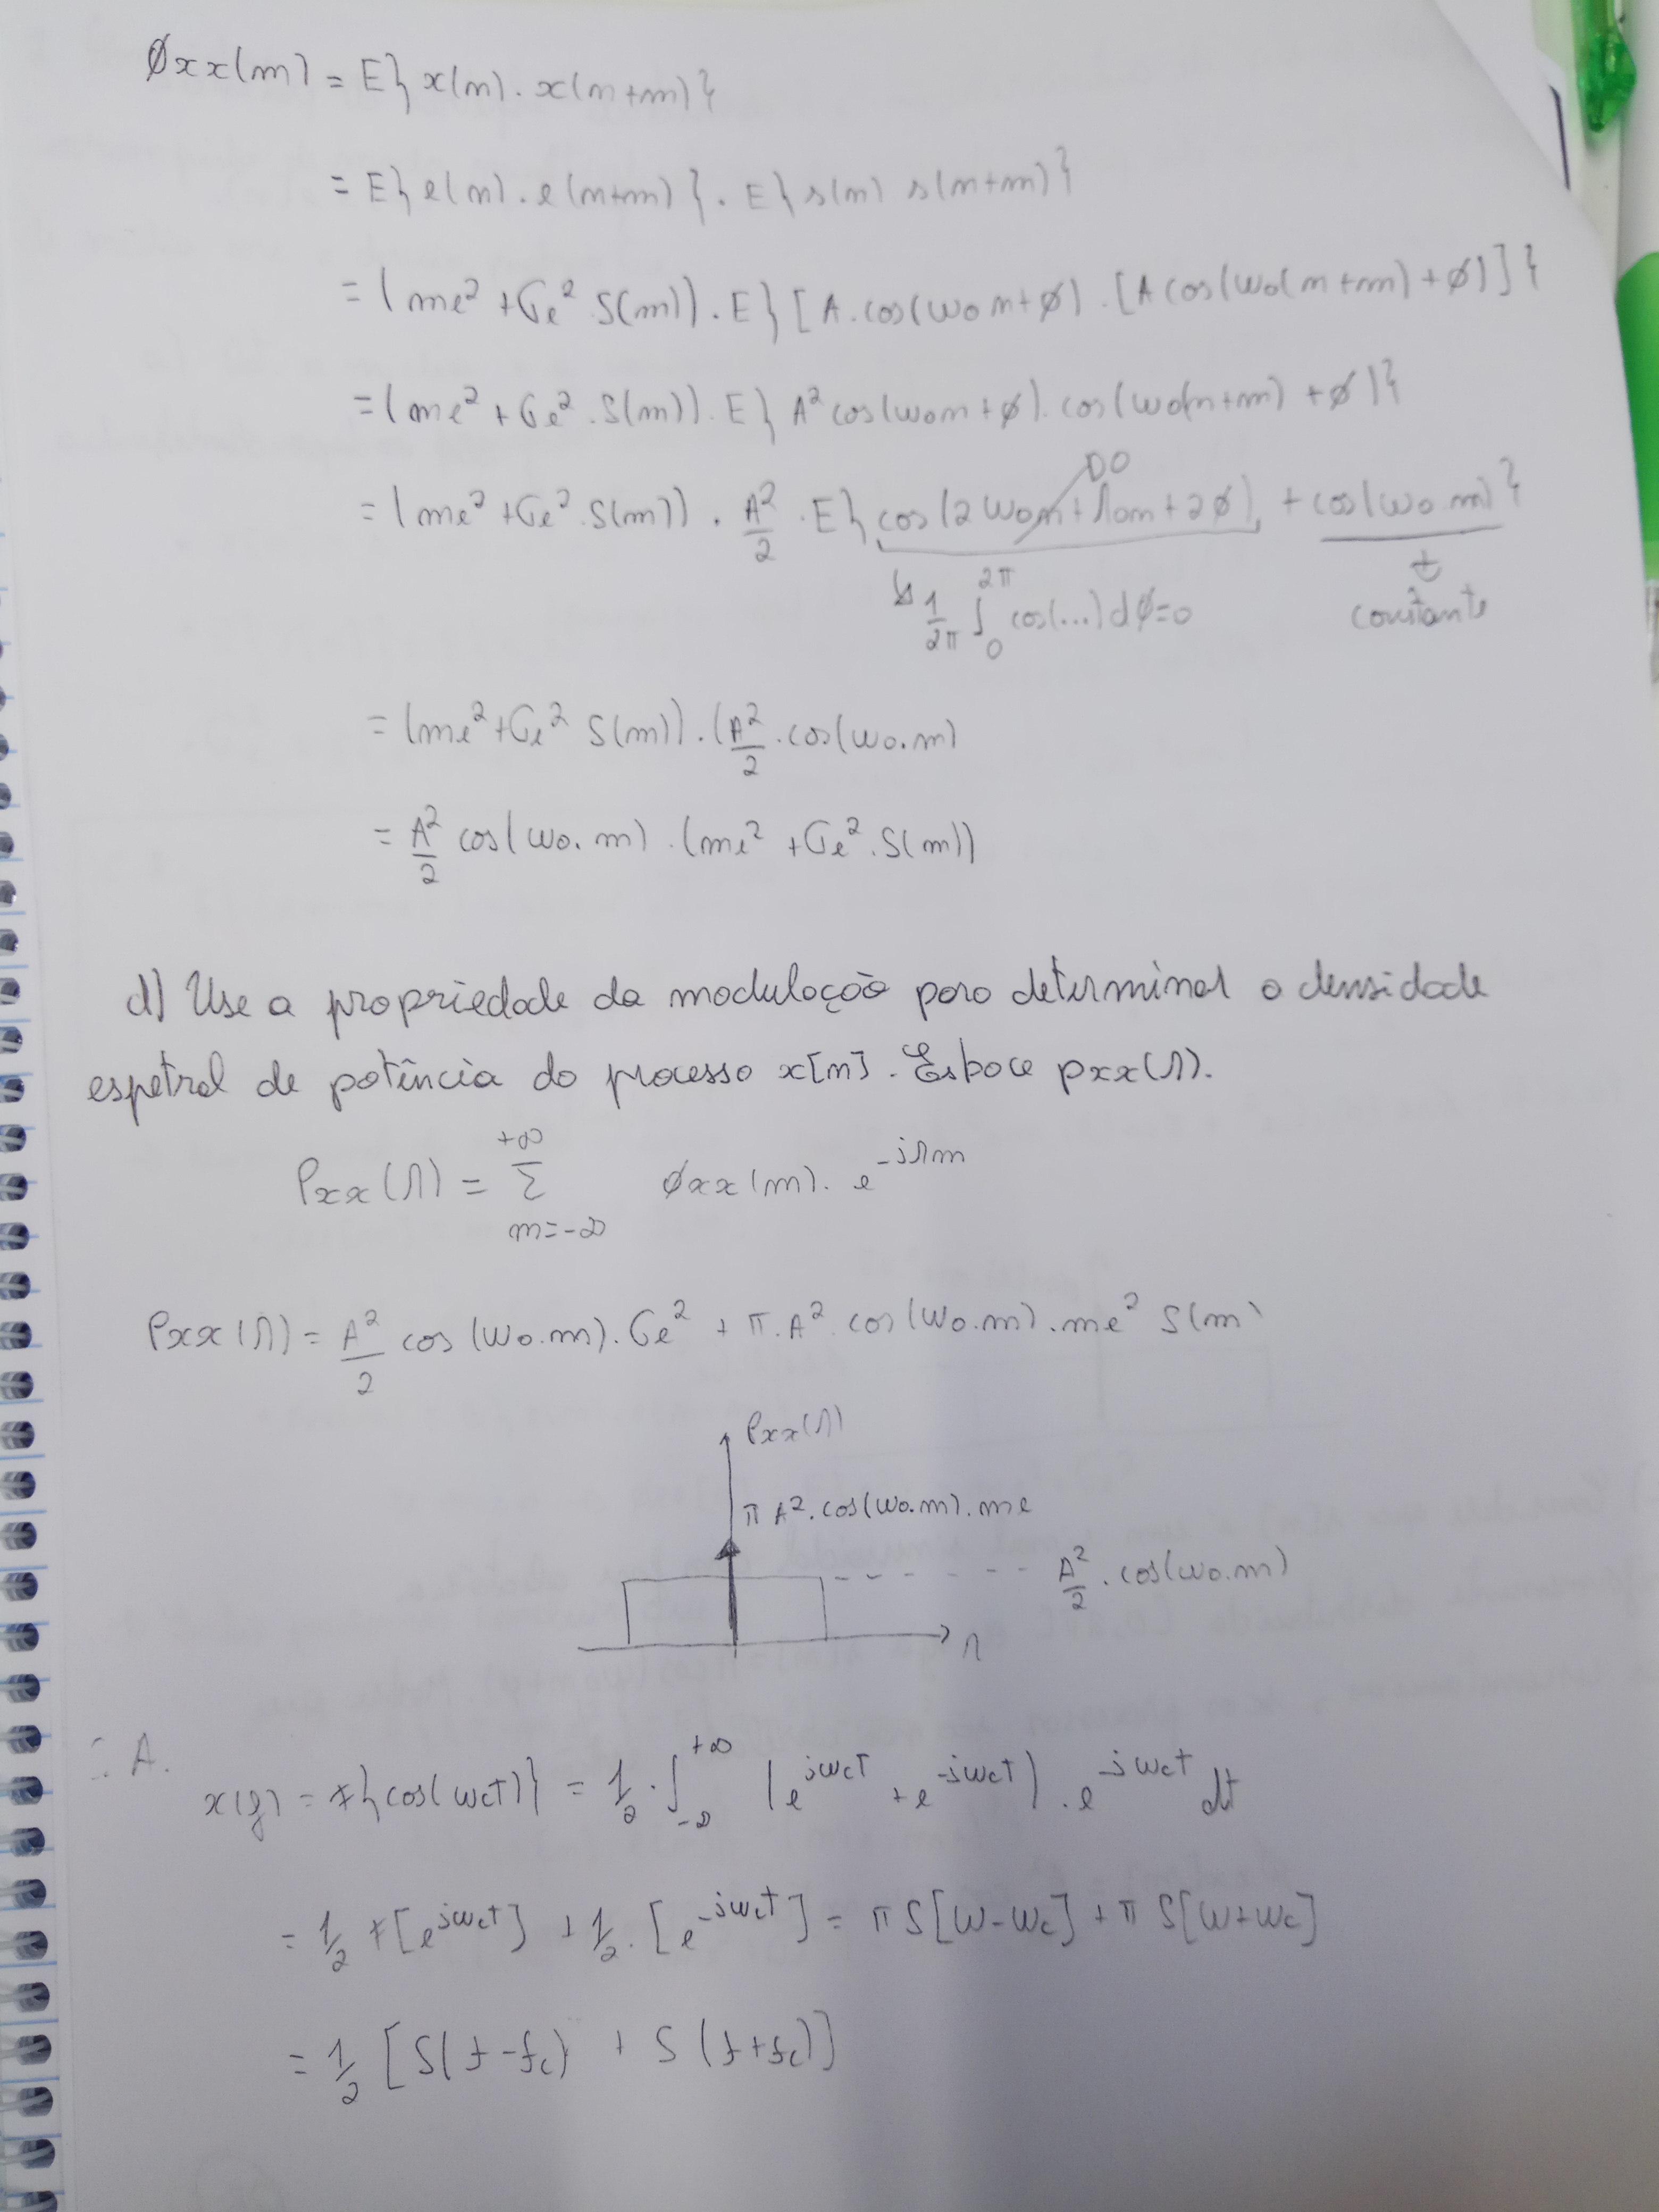 φxx(m) = E{x(n).x(n+m)}
= E{e(n).e(n+m)}.E{s(n) s(n+m)}
= (me² + σe² δ(m)).E{[A.cos(ω0n+φ).[A cos(ω0(n+m)+φ)]}
= (me² + σe².δ(m)).E{A² cos(ω0n+φ).cos(ω0(n+m)+φ)}
= (me² + σe².δ(m)).A²/2.E{cos(2ω0n+Ω0m+2φ) + cos(ω0.m)}
→0
↳ 1/2π ∫₀^2π cos(...)dφ=0
constante
= (me² + σe² δ(m)).(A²/2.cos(ω0.m)
= A²/2 cos(ω0.m).(me² + σe².δ(m))
d) Use a propriedade da modulação para determinar a densidade
espetral de potência do processo x[n]. Esboce pxx(Ω).
Pxx(Ω) = Σ_{m=-∞}^{+∞} φxx(m).e^{-jΩm}
Pxx(Ω) = A²/2 cos(ω0.m).σe² + π.A².cos(ω0.m).me² δ(m)
Pxx(Ω)
π A².cos(ω0.m).me
A²/2.cos(ω0.m)
Ω
C.A.
x(f) = F{cos(ωct)} = 1/2.∫_{-∞}^{+∞} (e^{jωct} + e^{-jωct}).e^{-jωct} dt
= 1/2 F[e^{jωct}] + 1/2.[e^{-jωct}] = π δ[ω-ωc] + π δ[ω+ωc]
= 1/2 [δ(f-fc) + δ(f+fc)]